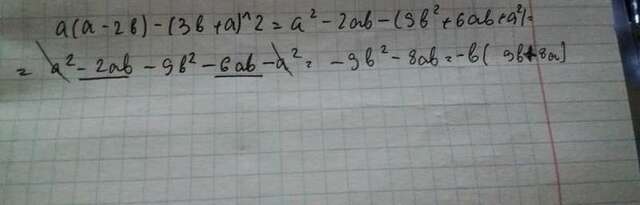 a(a-2b)-(3b+a)^2=a²-2ab-(9b²+6ab+a²)=
=a²-2ab-9b²-6ab-a²=-9b²-8ab=-b(9b+8a)